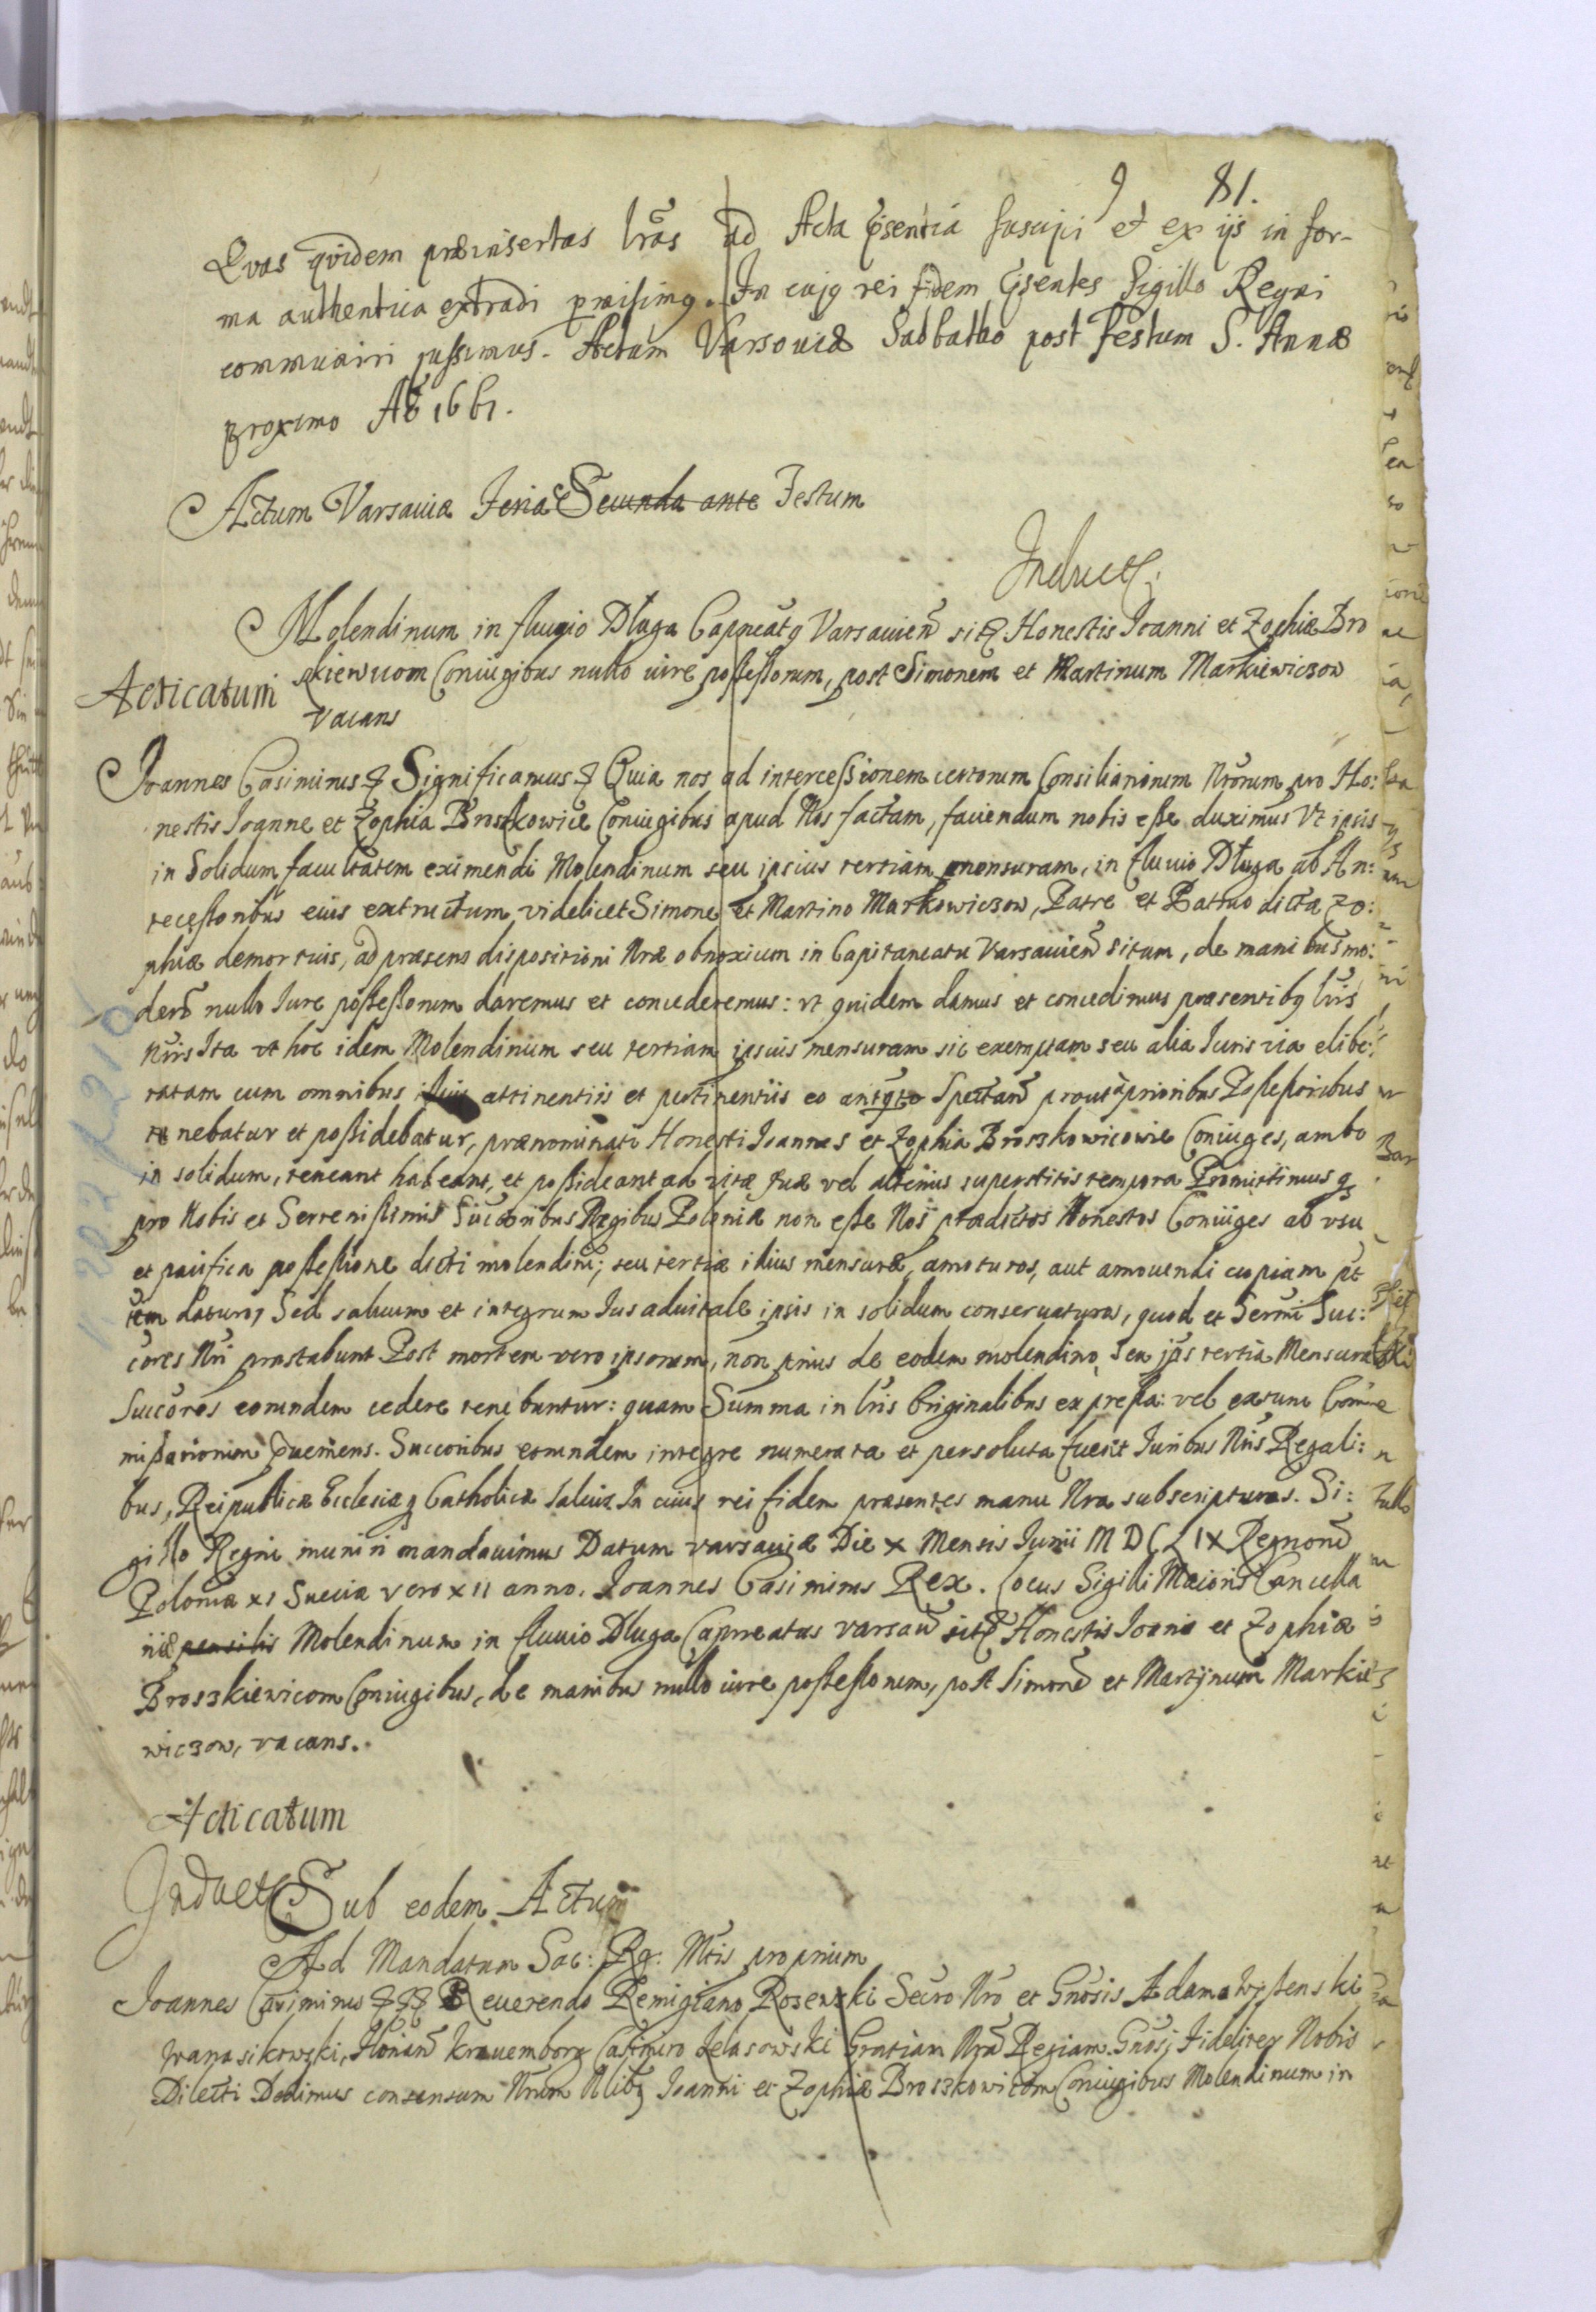 9 81.
Quas quidem præinsertas lrãs ad Acta p̃sentia suscipi et ex ijs in for-
ma authentica extradi p̱misimꝗ. In cujꝗ rei fidem p̃sentes Sigillo Regni
communiri jussimus. Actum Varsoviæ Sabbatho post festum S. Annæ
proximo Aõ 1661.
Actum Varsaviæ Feria Secunda ante Festum
Induct:
Molendinum in fluvio Dluga Capneatꝗ Varsavien̄ sit Honestis Joanni et Zophiæ Bro
skiewicom Coniugibus nullo iure possessorum, post Simonem et Martinum Markiewiczow
Acticatum
vacans
Joannes Casimirus Significamus Quia nos ad intercessionem certorum Consiliariorum Nrorum pro Ho:
nestis Joanne et Zophia Broszkowice Coniugibus apud Nos factam, faciendum nobis esse duximus Vt ipsis
in Solidum facultatem eximendi Molendinum seu ipsius tertiam mensuram, in fluuio Dluga ab An:
tecessoribus eius extructum, videlicet Simone et Martino Markowiczow, Patre et Patruo dictæ Zo:
phiæ demortuis, ad præsens dispositioni Nræ obnoxium in Capitaneatu Varsauien̄ situm, de manibus mo:
dern̄ nullo Iure possessorum daremus et concederemus: vt quidem damus et concedimus præsentibꝗ lris
Nris Ita vt hoc idem Molendinum seu tertiam ipsius mensuram sic exemptam seu alia Iuris via elibe:
ratam cum omnibus attinentiis et pertinentiis eo antꝗto Spectan̄ prout a prioribus Possessoribus
tenebatur et possidebatur, prænominati Honesti Joannes et Zophia Broszkowicowie Coniuges, ambo
in solidum, teneant habeant, et possideant ad vitæ suæ vel alterius superstitis tempora Promittimus ꝗ
pro Nobis et Serenissimis Succoribus Regibus Poloniæ non esse Nos prædictos Honestos Coniuges ab vsu
et pacifica possessione dicti molendini, seu tertiæ illius mensuræ, amoturos, aut amouendi cupiam pt
tem daturos, Sed saluum et integrum Ius aduitale ipsis in solidum conseruaturos, quod et Sermi Suc:
cores Nri præstabunt Post mortem vero ipsorum, non prius de eodem molendino, seu jps tertia Mensura
Succores eorundem cedere tenebuntur: quam Summa in lris Originalibus expressa: vel earum Com
missariorum Succoribus eorundem integre numerata et persoluta fuerit Iuribus Nris Regali:
bus, Reipublicæ Ecclesiæꝗ Catholicæ saluis. In cuius rei fidem præsentes manu Nra subscripturas. Si:
gillo Regni muniri mandauimus Datum varsauiæ Die X Mensis Iunii MDCLIX Regnorũ
Poloniæ XI Sueciæ vero XII anno. Joannes Casimirus Rex. Locus Sigilli Maioris Cancella
riæ pensilis Molendinum in fluuio Dluga Capneatus varsau̅ Honestis Joanni et Zophiæ
Broszkiewicom Coniugibus, de manibus nullo iure possessorum, post Simonē et Martynum Markie
wiczow, vacans.
Acticatum
Induct Sub eodem Actum
Ad Mandatum Sac: Rg: Mtis proprium
Joannes Casimirus Reuerendo Remigiano Secro Nro et Gnosis
Casimiro Gratiam Nrã Regiam. Gnosi Fideliter Nobis
Dilecti Dedimus consensum Nrum Joanni et Zophiæ Broszkowicom Coniugibus Molendinum in